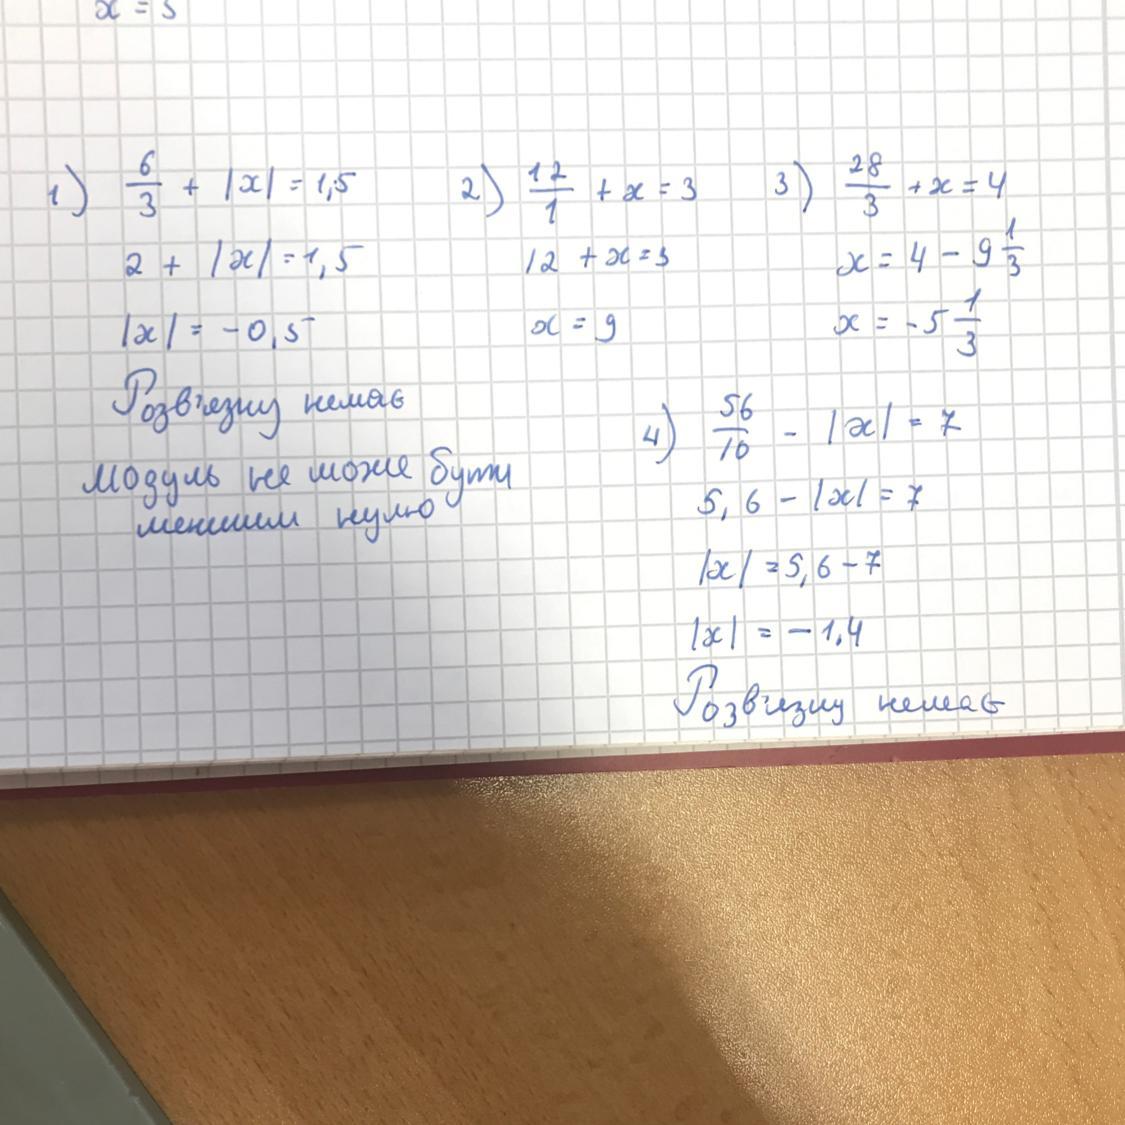 x = 5
1) 6/3 + |x| = 1,5
2 + |x| = 1,5
|x| = -0,5
Розв'язку немає
модуль не може бути
меншим нулю
2) 12/1 + x = 3
12 + x = 3
x = 9
3) 28/3 + x = 4
x = 4 - 9 1/3
x = -5 1/3
4) 56/10 - |x| = 7
5,6 - |x| = 7
|x| = 5,6 - 7
|x| = - 1,4
Розв'язку немає